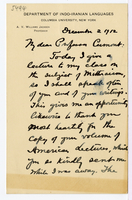 DEPARTMENT OF INDO-IRANIAN LANGUAGES
COLUMBIA UNIVERSITY, NEW YORK
A. V. WILLIAMS JACKSON
PROFESSOR
December 8, 1902
My dear Professor Cumont,
Today I give a
lecture to my class on
the subject of Mithraism
so I shall speak often
of you and of your writings.
This gives me an opportunity
likewise to thank you
most heartily for the
copy of your volume of
American lectures, which
you so kindly sent me
while I was away. The